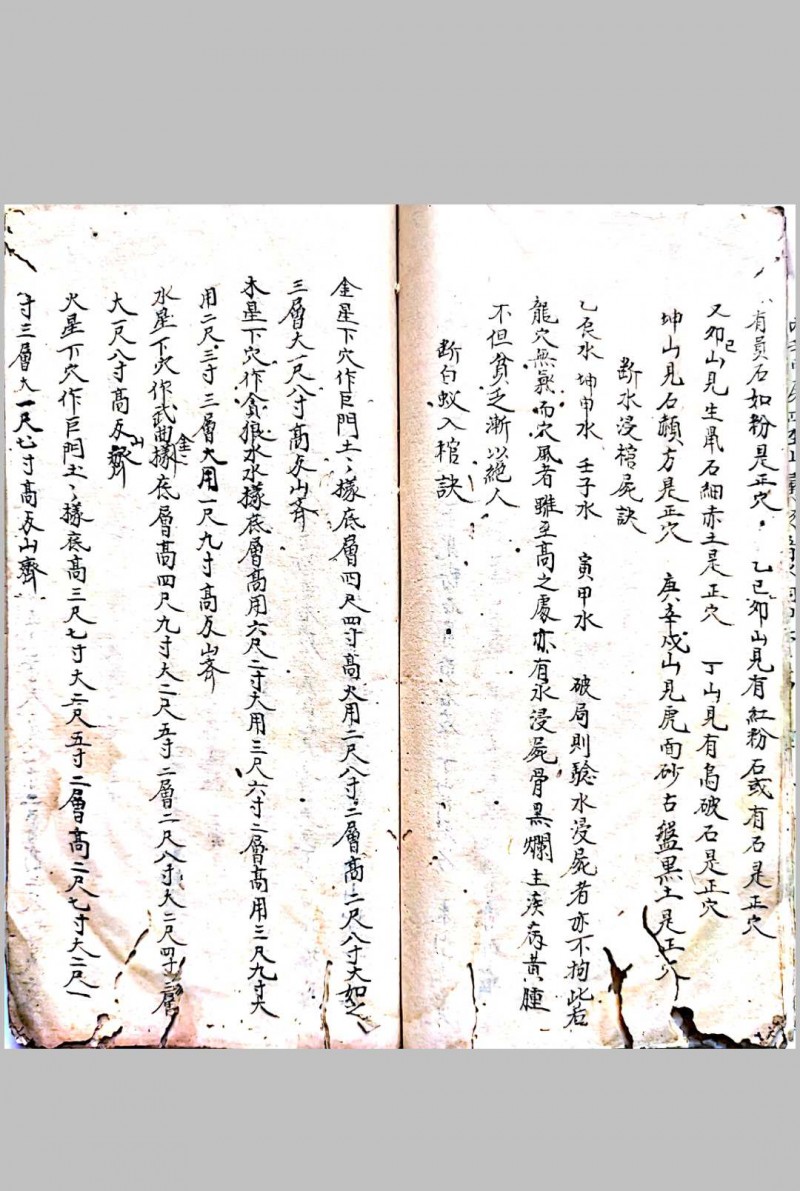 有員石如粉是正穴 乙巳卯山見有紅粉石或有石是正穴
又卯巳山見生鼠石細赤土是正穴 丁山見有烏破石是正穴
坤山見石頭方是正穴 庚辛戌山見虎面砂古盤黑土是正穴
断水浸棺屍訣
乙辰水 坤申水 壬子水 寅甲水 破局則驗水浸屍者亦不拘此右
龍穴無氣而穴風者雖至高之處亦有水浸屍骨黑爛主疾病黃腫
不但貧乏漸以絕人
断白蚁入棺訣
金星下穴作巨門土〻樣底層四尺四寸高大用二尺八寸二層高二尺八寸大如之
三層大一尺八寸高反山齊
木星下穴作貪狼水水樣底層高用六尺二寸大用三尺六寸二層高用三尺九寸大
用二尺三寸三層大用一尺九寸高反山齊
水星下穴作武曲金樣底層高四尺九寸大二尺五寸二層二尺八寸大二尺四寸三層
大一尺八寸高反山齊
火星下穴作巨門土〻樣底高三尺七寸大二尺五寸二層高二尺七寸大二尺一
寸三層大一尺七寸高反山齊